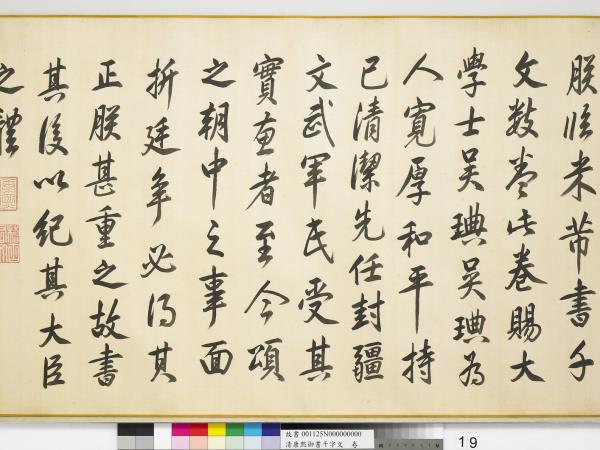 朕临米芾書千
文數卷此卷賜大
學士吴琠吴琠为
人寬厚和平持
已清潔先任封疆
文武軍民受其
實惠者至今頌
之朝中之事面
折廷争必得其
正朕甚重之故書
其後以紀其大臣
之禮
故書 001125N000000000
清康熙御書千字文 卷
19